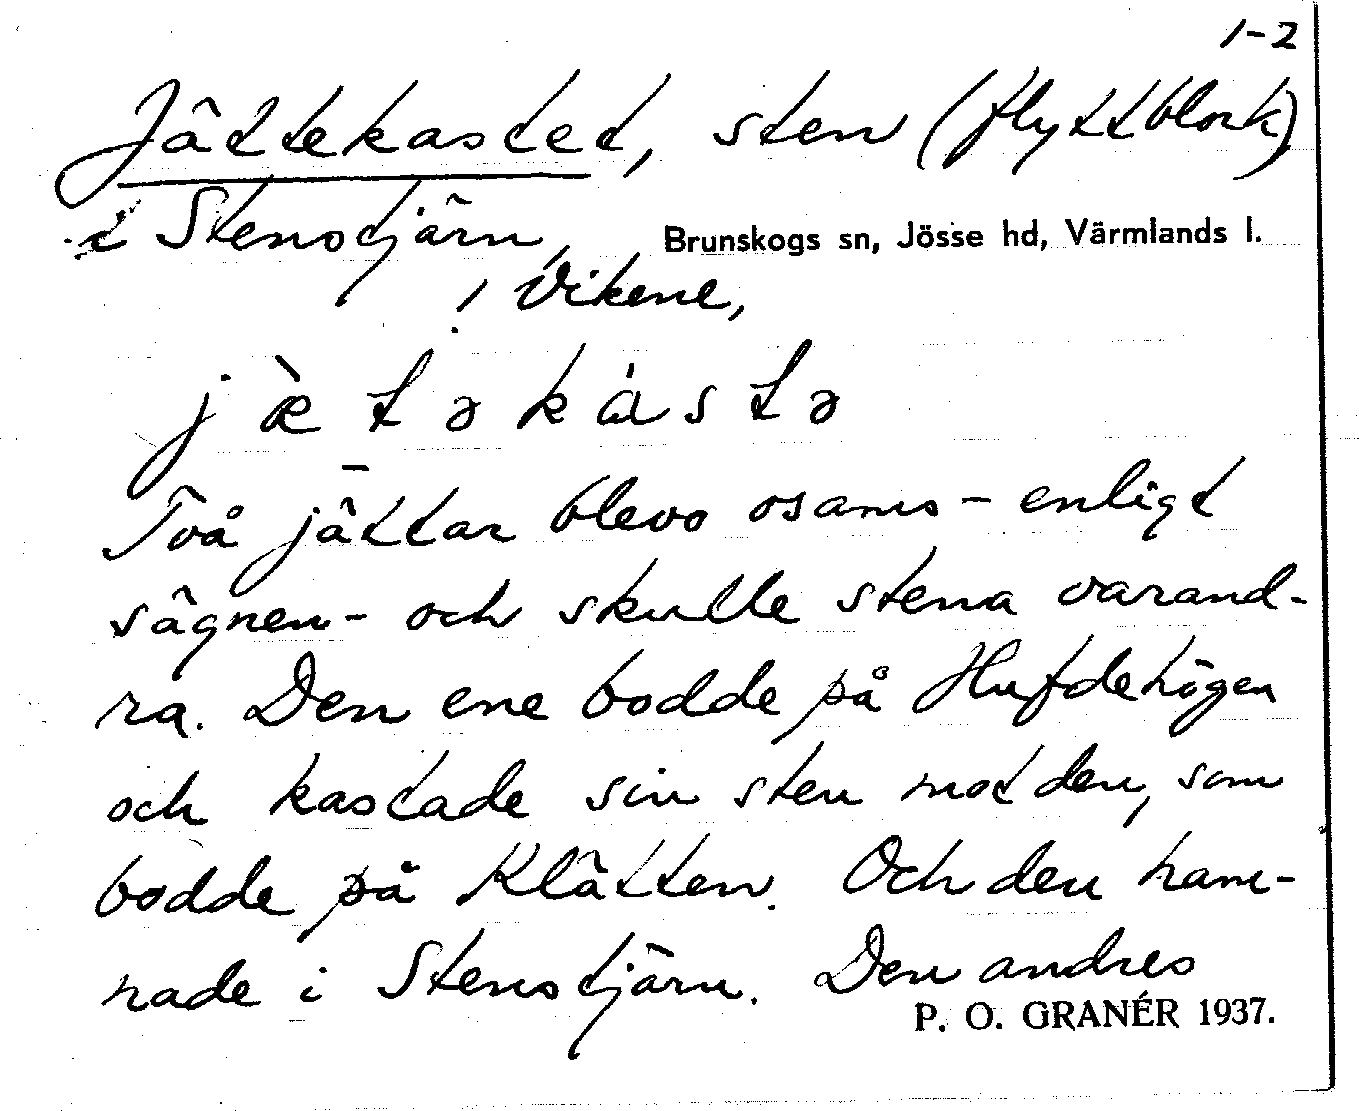 1-2
Jättekastet, sten (flyttblock)
i Stenstjärn, Brunskogs sn, Jösse hd, Värmlands l.
! Vikene,
j æ̀ t ə k á s t ə
Två jättar blevo osams - enligt
sägnen - och skulle stena varand-
ra. Den ene bodde på Hufdehögen
och kastade sin sten mot den, som
bodde på Klätten. Och den ham-
nade i Stenstjärn. Den andres
P. O. GRANÉR 1937.